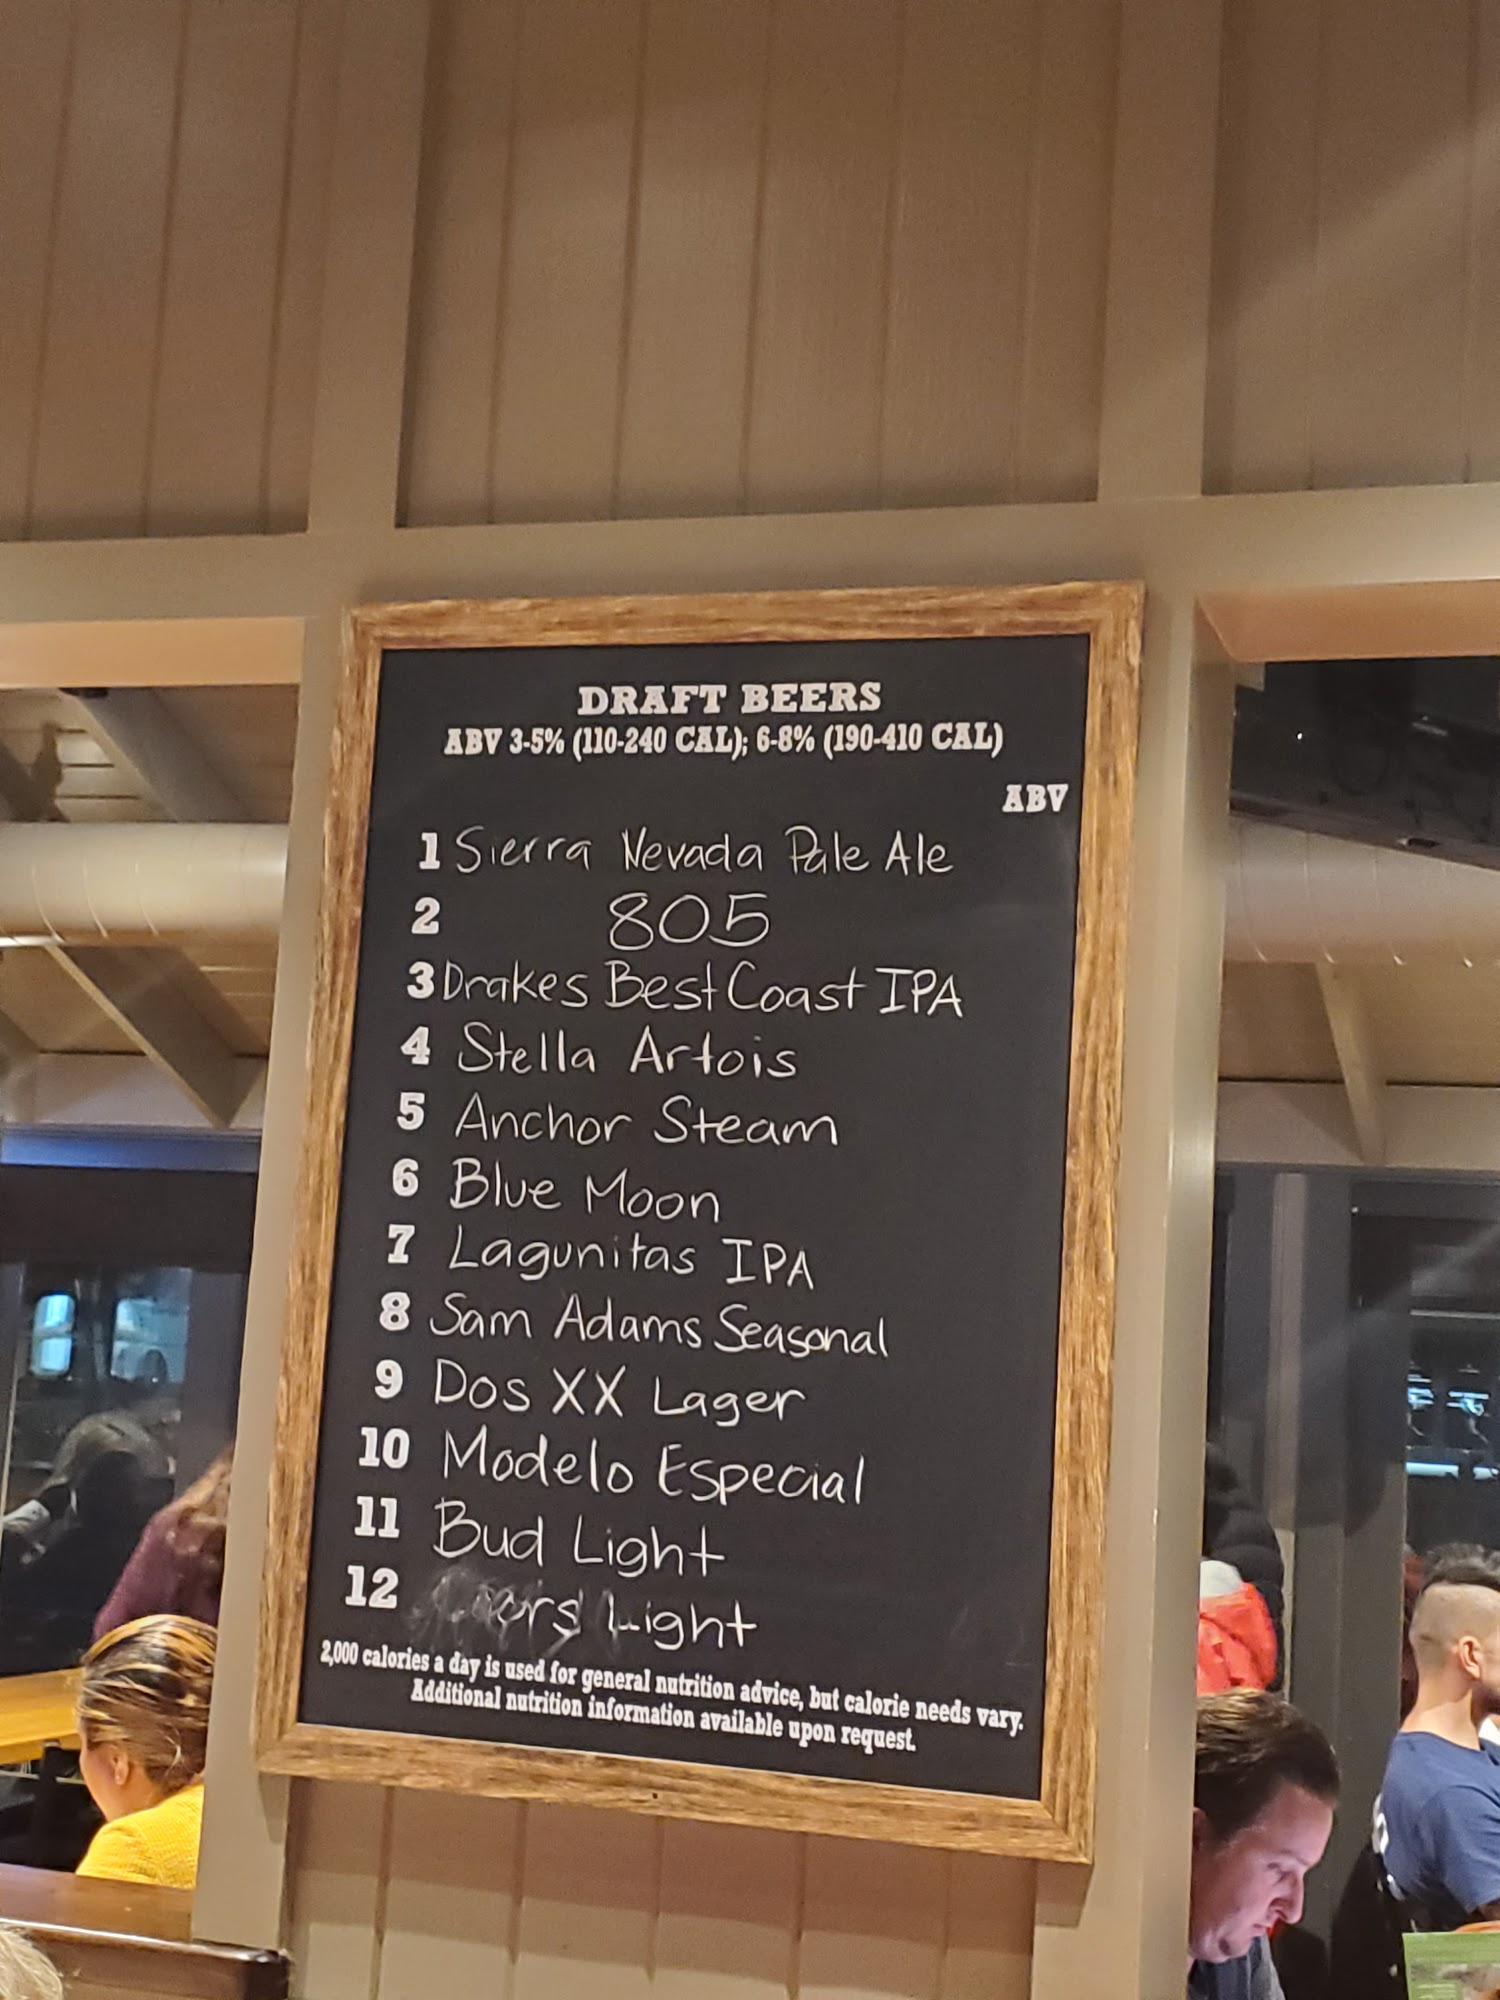 DRAFT BEERS
ABV 3-5% (110-240 CAL); 6-8% (190-410 CAL)
ABV
1 Sierra Nevada Pale Ale
2 805
3 Drakes Best Coast IPA
4 Stella Artois
5 Anchor Steam
6 Blue Moon
7 Lagunitas IPA
8 Sam Adams Seasonal
9 Dos XX Lager
10 Modelo Especial
11 Bud Light
12 Light
2,000 calories a day is used for general nutrition advice, but calorie needs vary.
Additional nutrition information available upon request.